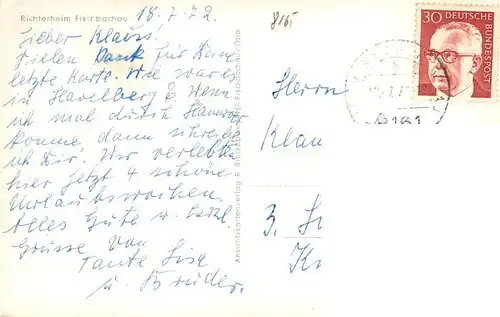 Richterheim Fischbachau
18.7.72.
8165
Lieber Klaus!
Vielen Dank für Deine
letzte Karte. Wie war es
in Havelberg? Wenn
ich mal durch Hannover
komme, dann schreibe
ich Dir. Wir verlebten
hier jetzt 4 schöne
Urlaubswochen.
Alles Gute u. herzl.
Grüsse von
Tante Lisa
u. Bruder.
Ansichtskartenverlag
30 DEUTSCHE
BUNDESPOST
8161
Herrn
Klau
3,